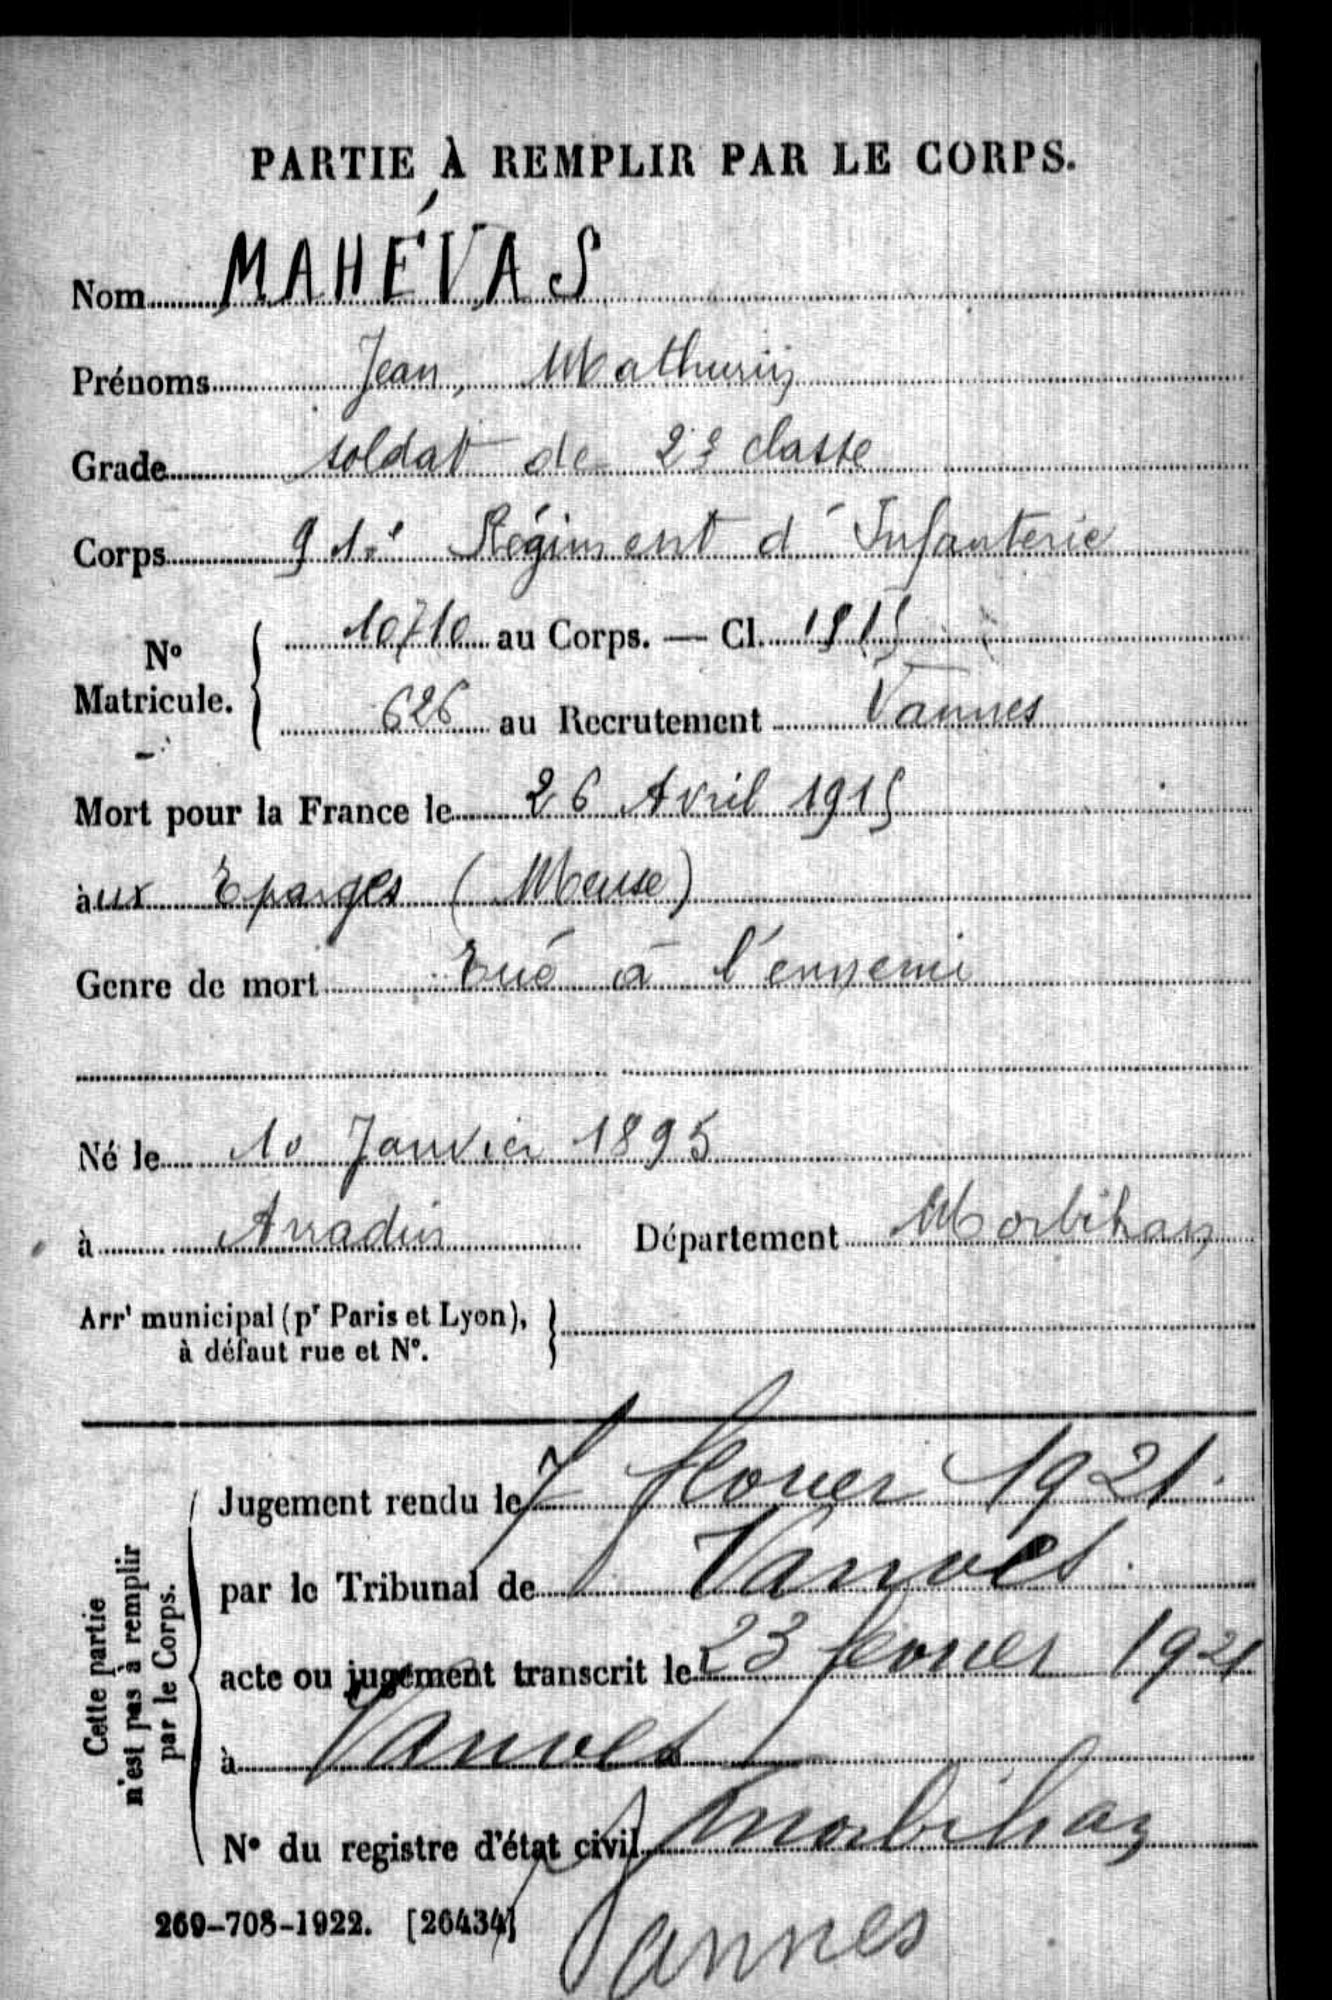 PARTIE À REMPLIR PAR LE CORPS.
Nom MAHÉVAS
Prénoms Jean, Mathurin
Grade soldat de 2e classe
Corps 91e Régiment d'Infanterie
No Matricule. { 10710 au Corps. — Cl. 1915
626 au Recrutement Vannes
Mort pour la France le 26 Avril 1915
àux Eparges (Meuse)
Genre de mort Tué à l'ennemi
Né le 10 Janvier 1895
à Arradin Département Morbihan
Arrt municipal (pr Paris et Lyon),
à défaut rue et N°.
Cette partie
n'est pas à remplir
par le Corps.
Jugement rendu le 7 février 1921.
par le Tribunal de Vannes.
acte ou jugement transcrit le 23 février 1921
à Vannes
N° du registre d'état civil Morbihan
269-708-1922. [26434]
Vannes